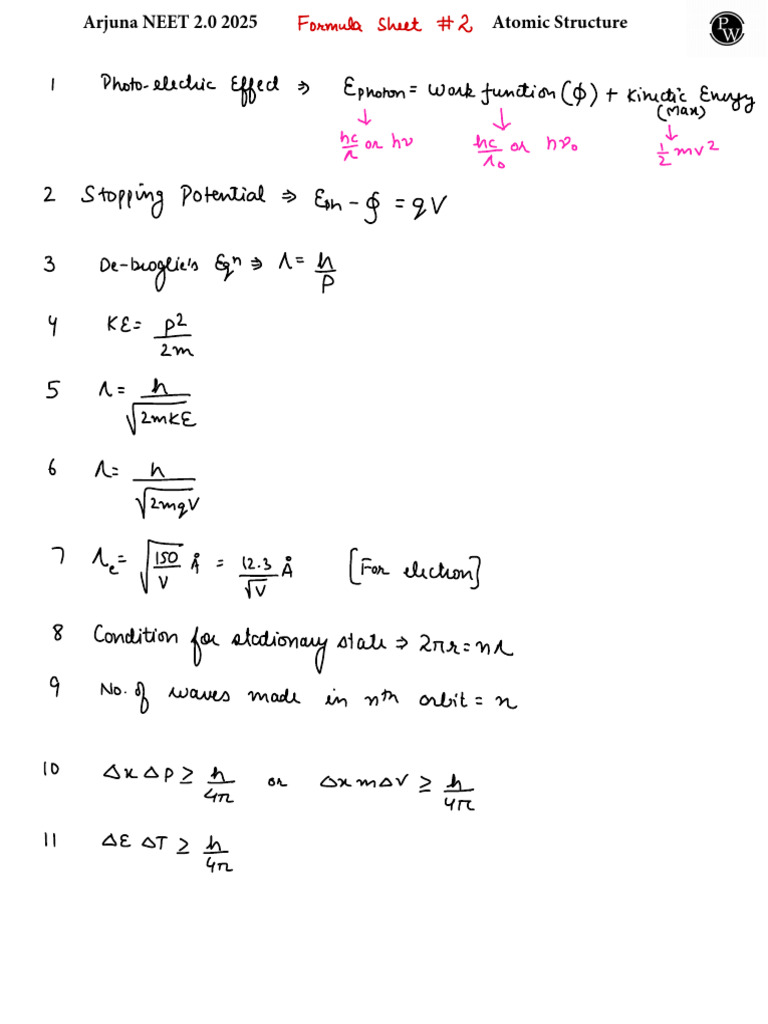 Arjuna NEET 2.0 2025 Formula Sheet #2 Atomic Structure PW
1 Photo-electric Effect ⇒ Ephoton = Work function (ϕ) + Kinetic Energy (Max)
↓ ↓ ↓
hc/λ or hν hc/λ₀ or hν₀ 1/2 mv²
2 Stopping Potential ⇒ Eph - ϕ = qV
3 De-broglie's Eqⁿ ⇒ λ = h/P
4 KE = p²/2m
5 λ = h/√2mKE
6 λ = h/√2mqV
7 λe = √150/V Å = 12.3/√V Å [For electron]
8 Condition for stationary state ⇒ 2πr = nλ
9 No. of waves made in nth orbit = n
10 Δx ΔP ≥ h/4π or Δx mΔV ≥ h/4π
11 ΔE ΔT ≥ h/4π